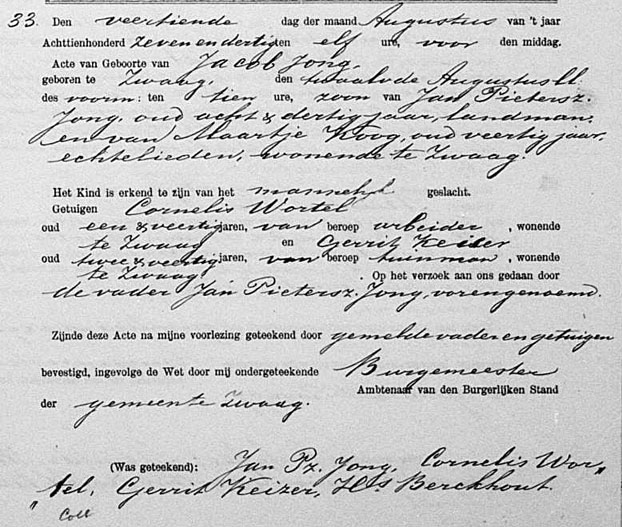 33. Den veertiende dag der maand Augustus van 't jaar
Achttienhonderd zeven en dertig en elf ure, voor den middag.
Acte van Geboorte van Jacob Jong,
geboren te Zwaag, den twaalvde Augustus ll.
des voorm: ten tien ure, zoon van Jan Pietersz.
Jong, oud acht & dertig jaar, landman,
en van Maartje Koog, oud veertig jaar,
echtelieden, wonende te Zwaag.
Het Kind is erkend te zijn van het mannelijk geslacht.
Getuigen Cornelis Wortel
oud een & veertig jaren, van beroep arbeider, wonende
te Zwaag en Gerrit Keizer
oud twee & veertig jaren, van beroep tuinman, wonende
te Zwaag. Op het verzoek aan ons gedaan door
de vader Jan Pietersz. Jong, vorengenoemd.
Zijnde deze Acte na mijne voorlezing geteekend door gemelde vader en getuigen
bevestigd, ingevolge de Wet door mij ondergeteekende Burgemeester
Ambtenaar van den Burgerlijken Stand
der gemeente Zwaag.
(Was geteekend): Jan Pz. Jong, Cornelis Wor„
„tel, Gerrit Keizer, Hs Berckhout.
Coll